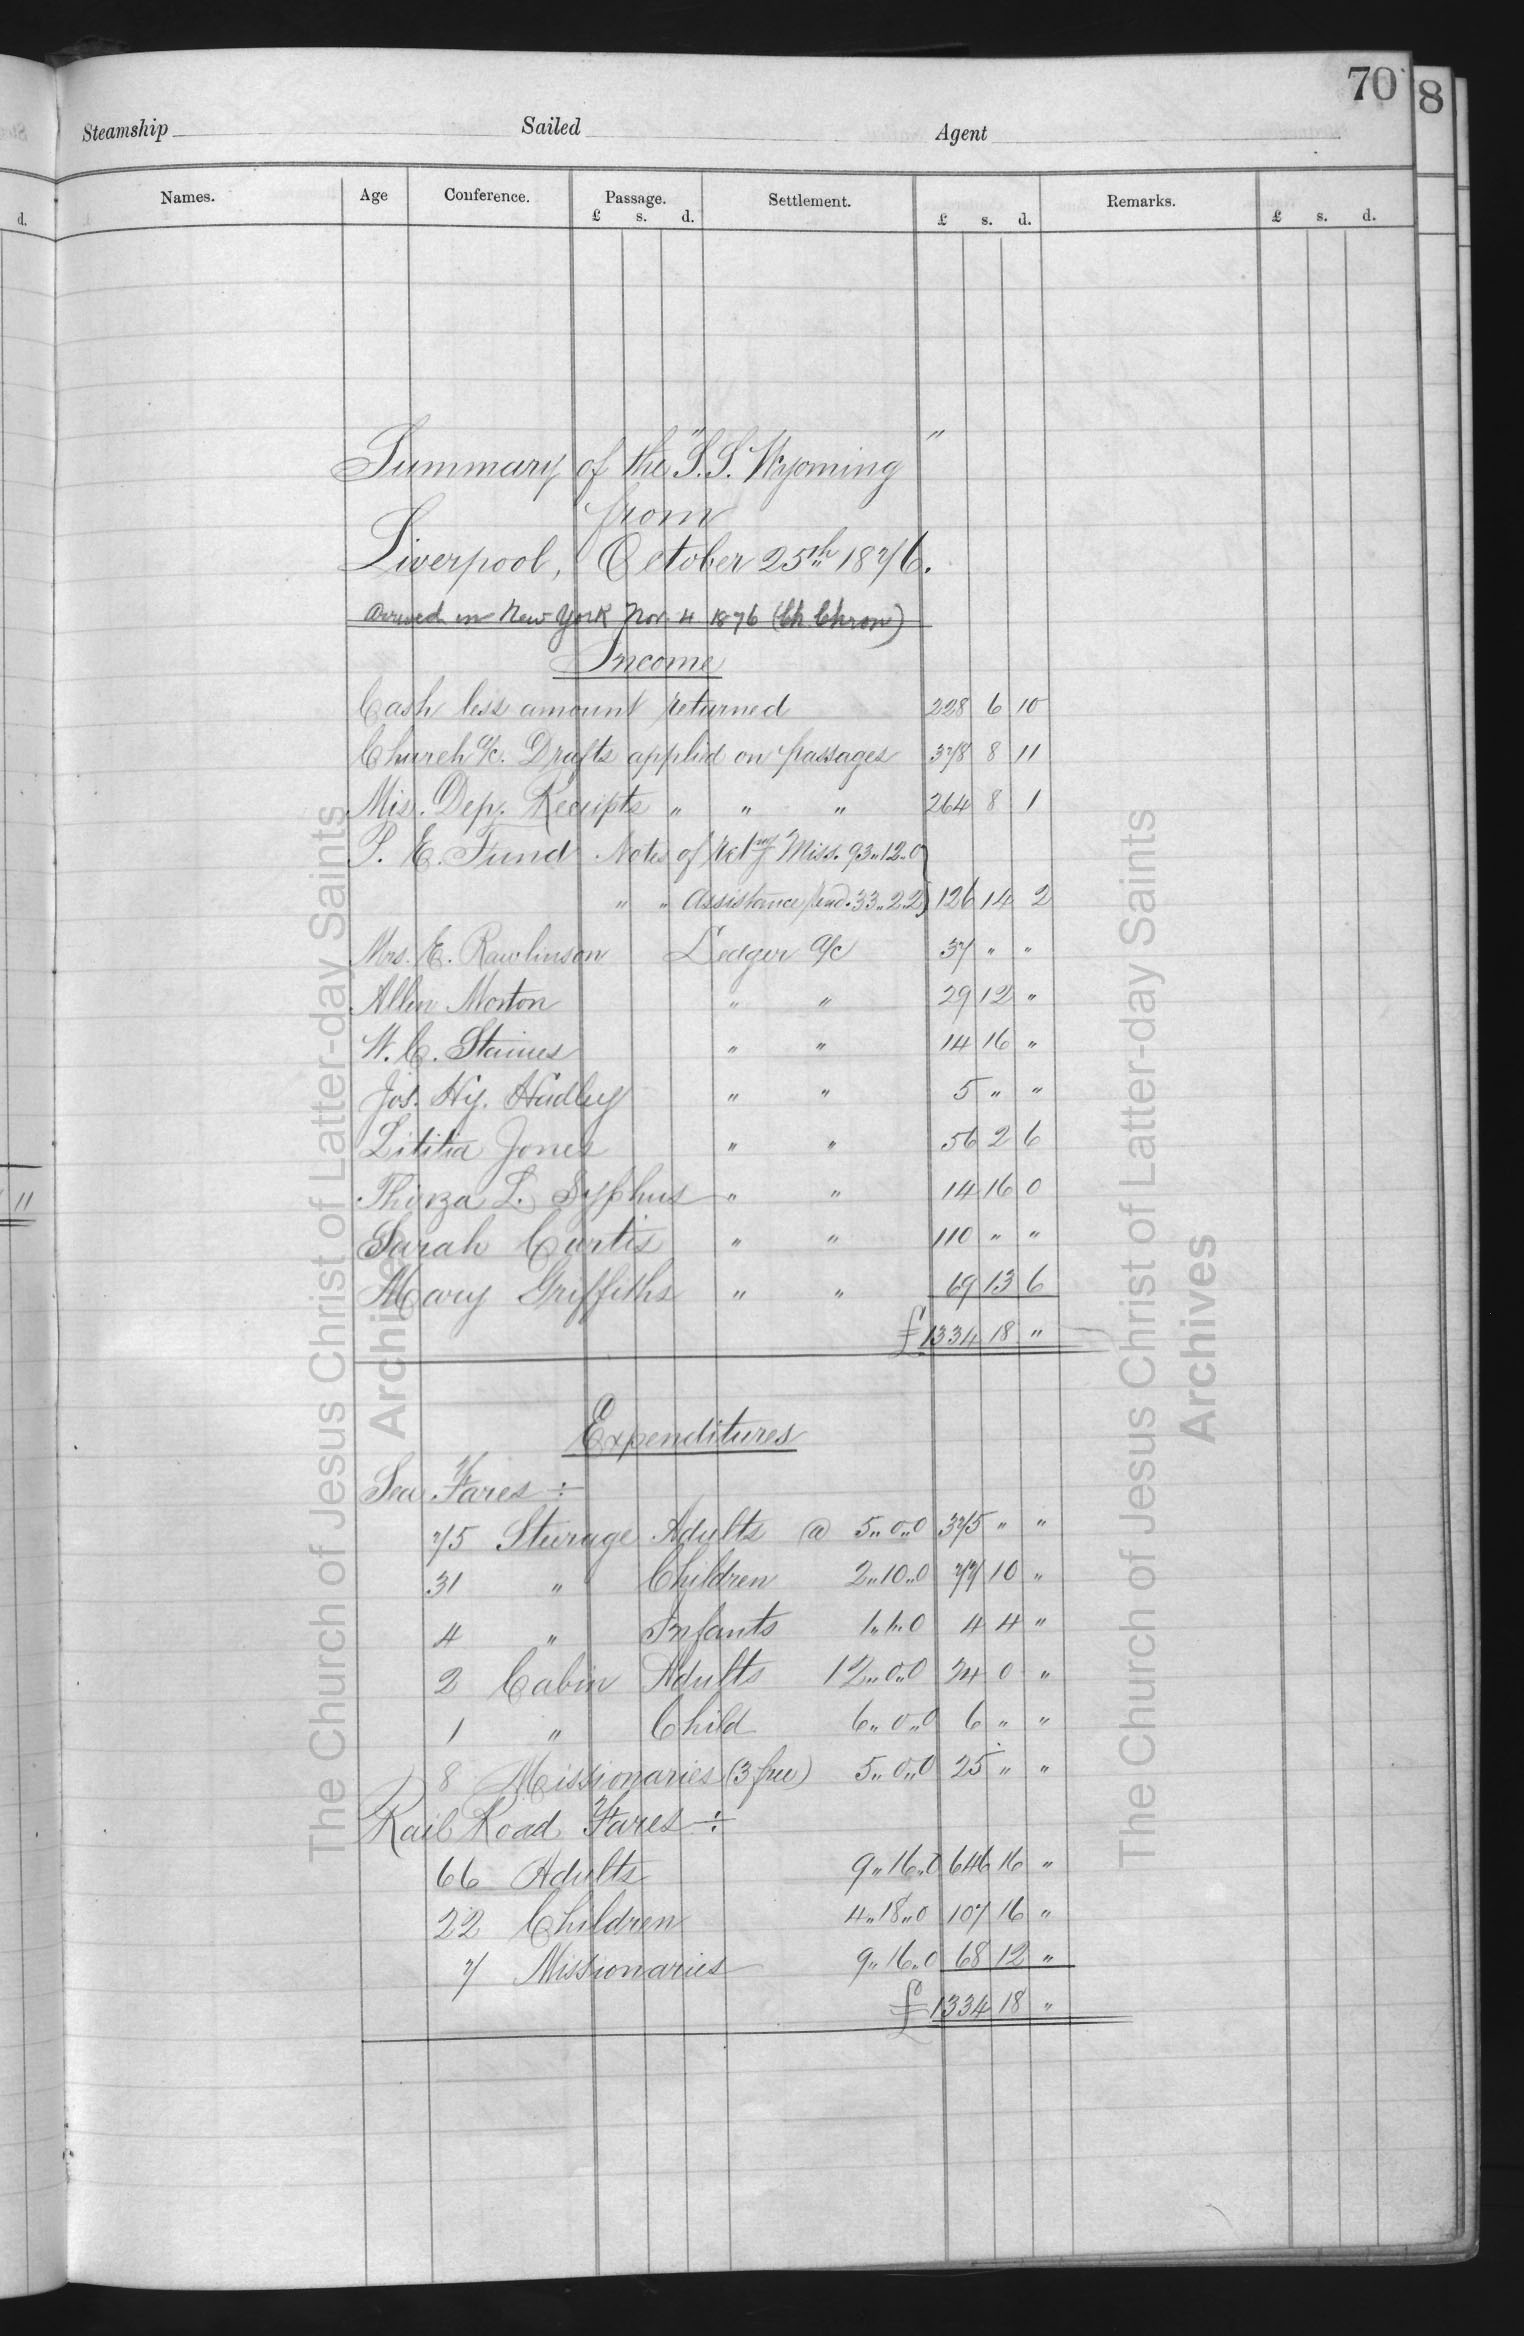 70
8
Steamship Sailed Agent
Names. Age Conference. Passage. Settlement. Remarks.
d. £ s. d. £ s. d. £ s. d.
Summary of the "S.S. Wyoming"
from
Liverpool, October 25th 1876.
Arrived in New York Nov 4 1876 (Ch Chron)
Income
Cash less amount returned 228 6 10
Church a/c. Drafts applied on passages 378 8 11
Mis. Dep. Receipts " " " 264 8 1
P. E. Fund Notes of Retng Miss. 93..12..0
" " Assistance 33..2..2 126 14 2
Mrs. E. Rawlinson Ledger a/c 37 " "
Allen Morton " " 29 12 "
W. C. Staines " " 14 16 "
Jos. Hy. Hadley " " 5 " "
Lititia Jones " " 56 2 6
Thirza L. Syphus " " 14 16 0
Sarah Curtis " " 110 " "
Mary Griffiths " " 69 13 6
£1334 18 "
11
Expenditures
Sea Fares ÷
75 Steerage Adults @ 5..0..0 375 " "
31 " Children 2..10..0 77 10 "
4 " Infants 1..1..0 4 4 "
2 Cabin Adults 12..0..0 24 0 "
1 " Child 6..0..0 6 " "
8 Missionaries (3 free) 5..0..0 25 " "
Rail Road Fares ÷
66 Adults 9..16..0 646 16 "
22 Children 4..18..0 107 16 "
7 Missionaries 9..16..0 68 12 "
£1334 18 "
The Church of Jesus Christ of Latter-day Saints
Archives
The Church of Jesus Christ of Latter-day Saints
Archives